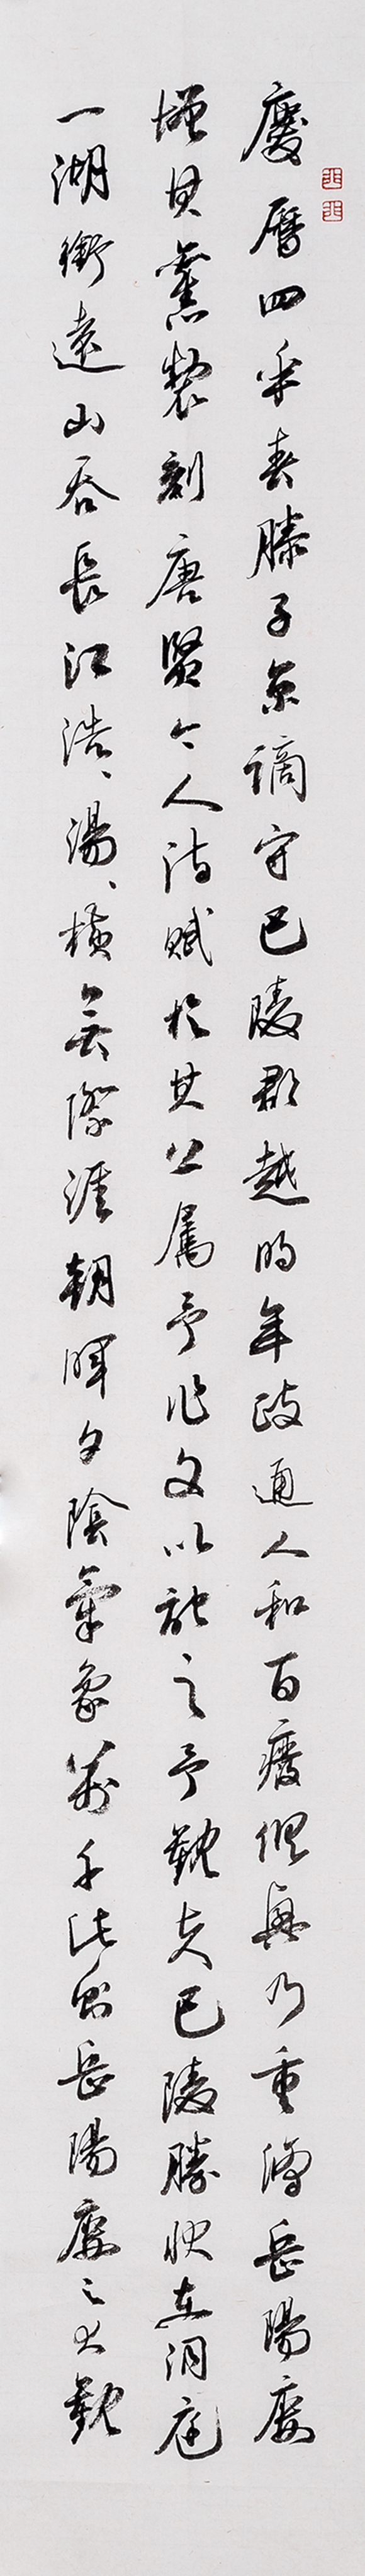 慶曆四年春滕子京謫守巴陵郡越明年政通人和百廢俱興乃重脩岳陽樓
增其舊製刻唐賢今人詩賦於其上屬予作文以記之予觀夫巴陵勝狀在洞庭
一湖銜遠山吞長江浩、湯、橫無際涯朝暉夕陰氣象萬千此則岳陽樓之大觀